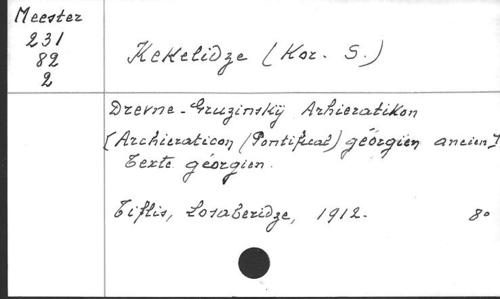 Meester
231
82
2
Kekelidze (Kor. S.)
Drevne-Gruzinskij Arhieratikon
[Archieraticon (Pontifical) géorgien ancien]
Texte géorgien.
Tiflis, Losaberidze, 1912. 8°